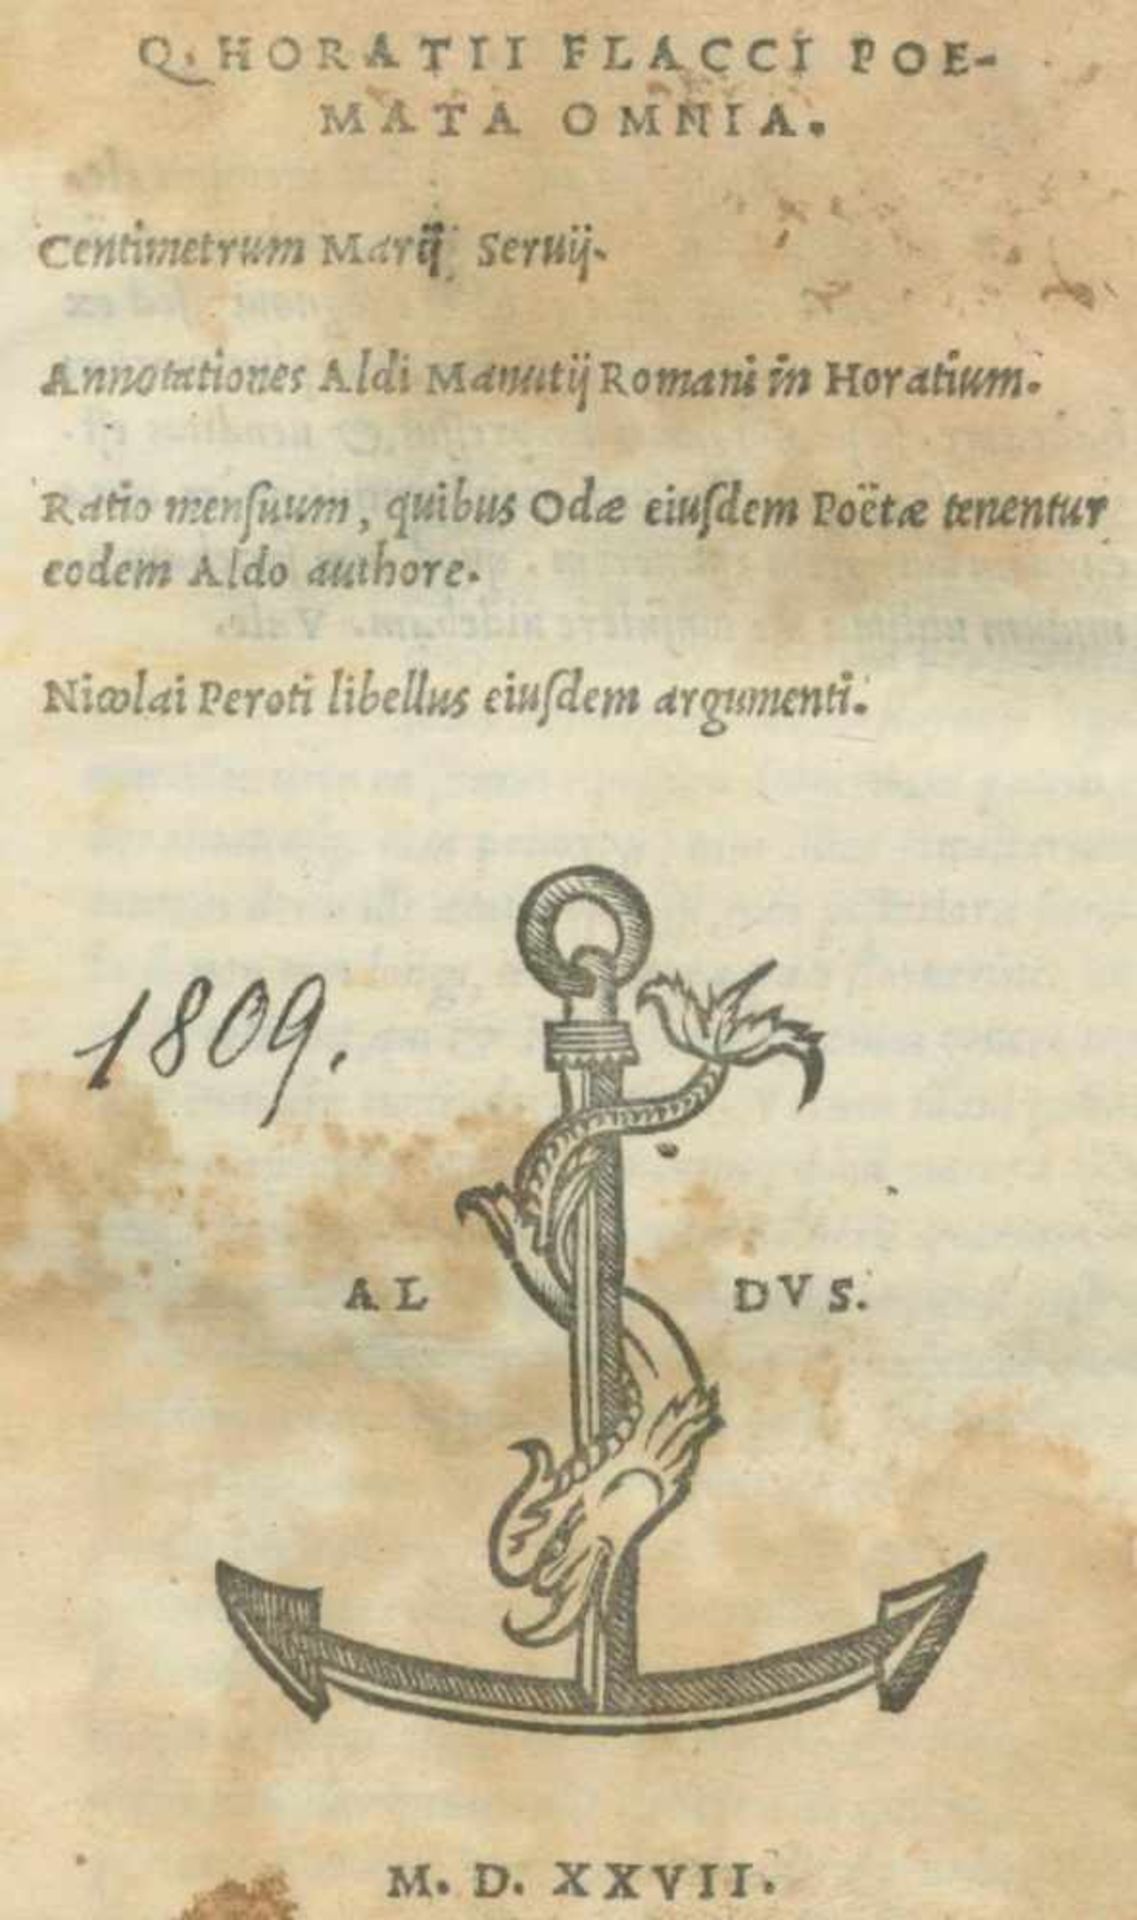 Q. HORATII FLACCI POE-
MATA OMNIA.
Centimetrum Marij Seruij.
Annotationes Aldi Manutij Romani in Horatium.
Ratio mensuum, quibus Odæ eiuſdem Poëtæ tenentur
eodem Aldo authore.
Nicolai Peroti libellus eiuſdem argumenti.
1809.
AL DVS.
M. D. XXVII.